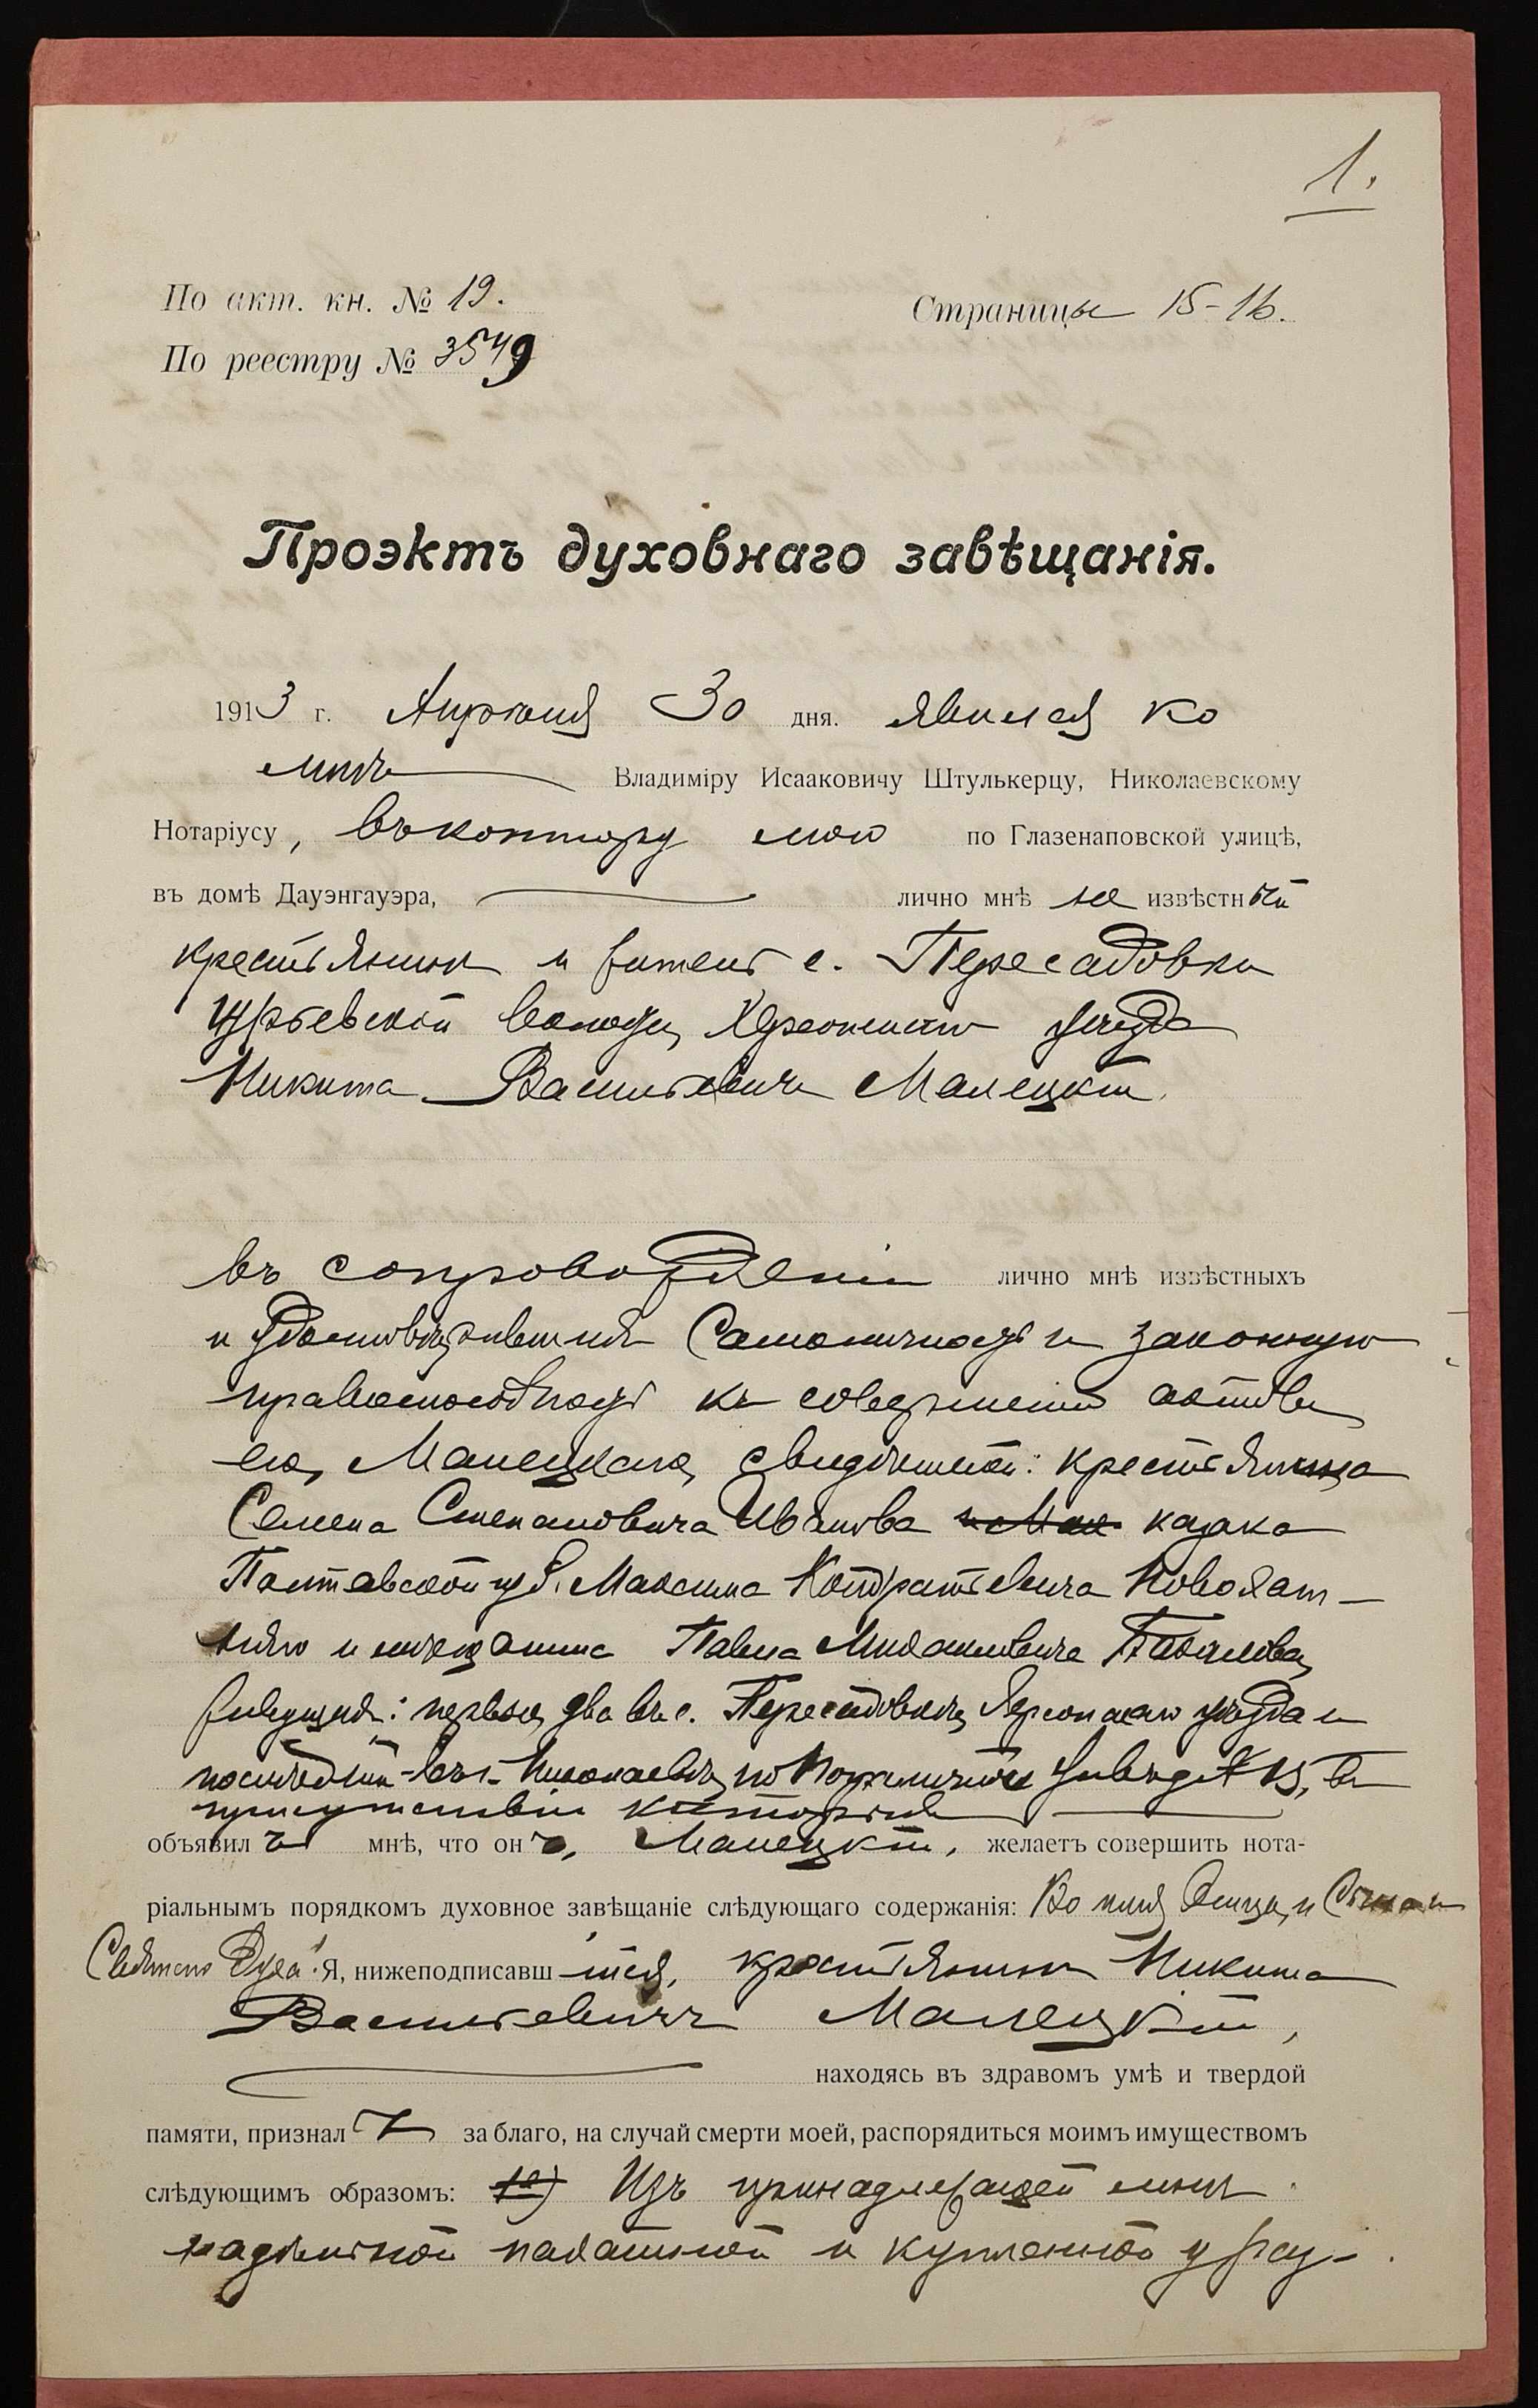 1.
По акт. кн. № 19.
Страницы 15-16.
По реестру № 3549
Проэктъ духовнаго завѣщанія.
1913 г. Апрѣля 30 дня. явился ко
мнѣ Владиміру Исааковичу Штулькерцу, Николаевскому
Нотаріусу, въ контору мою по Глазенаповской улицѣ,
въ домѣ Дауэнгауэра, лично мнѣ не извѣстный
крестьянинъ и житель с. Пересадовки
волости, Херсонскаго уѣзда
Никита Васильевичъ Малецкій.
въ сопровожденіи лично мнѣ извѣстныхъ
и удостовѣрившихъ самоличность и законную
правоспособность къ совершенію актовъ
его, Малецкаго, свидѣтелей: крестьянина
Семена Степановича Иванова казака
Полтавской губ. Максима Кондратьевича
и мѣщанина Павла Михайловича
живущихъ: первые два въ с. Пересадовкѣ, Херсонскаго уѣзда и
послѣдній въ г. Николаевѣ, по въ
присутствіи которыхъ
объявилъ мнѣ, что онъ, Малецкій, желаетъ совершить нота-
ріальнымъ порядкомъ духовное завѣщаніе слѣдующаго содержанія: Во имя Отца, и Сына и
Святаго Духа! Я, нижеподписавшійся, крестьянинъ Никита
Васильевичъ Малецкій,
находясь въ здравомъ умѣ и твердой
памяти, призналъ за благо, на случай смерти моей, распорядиться моимъ имуществомъ
слѣдующимъ образомъ: Изъ принадлежащей мнѣ
надѣльной пахатной и купленной